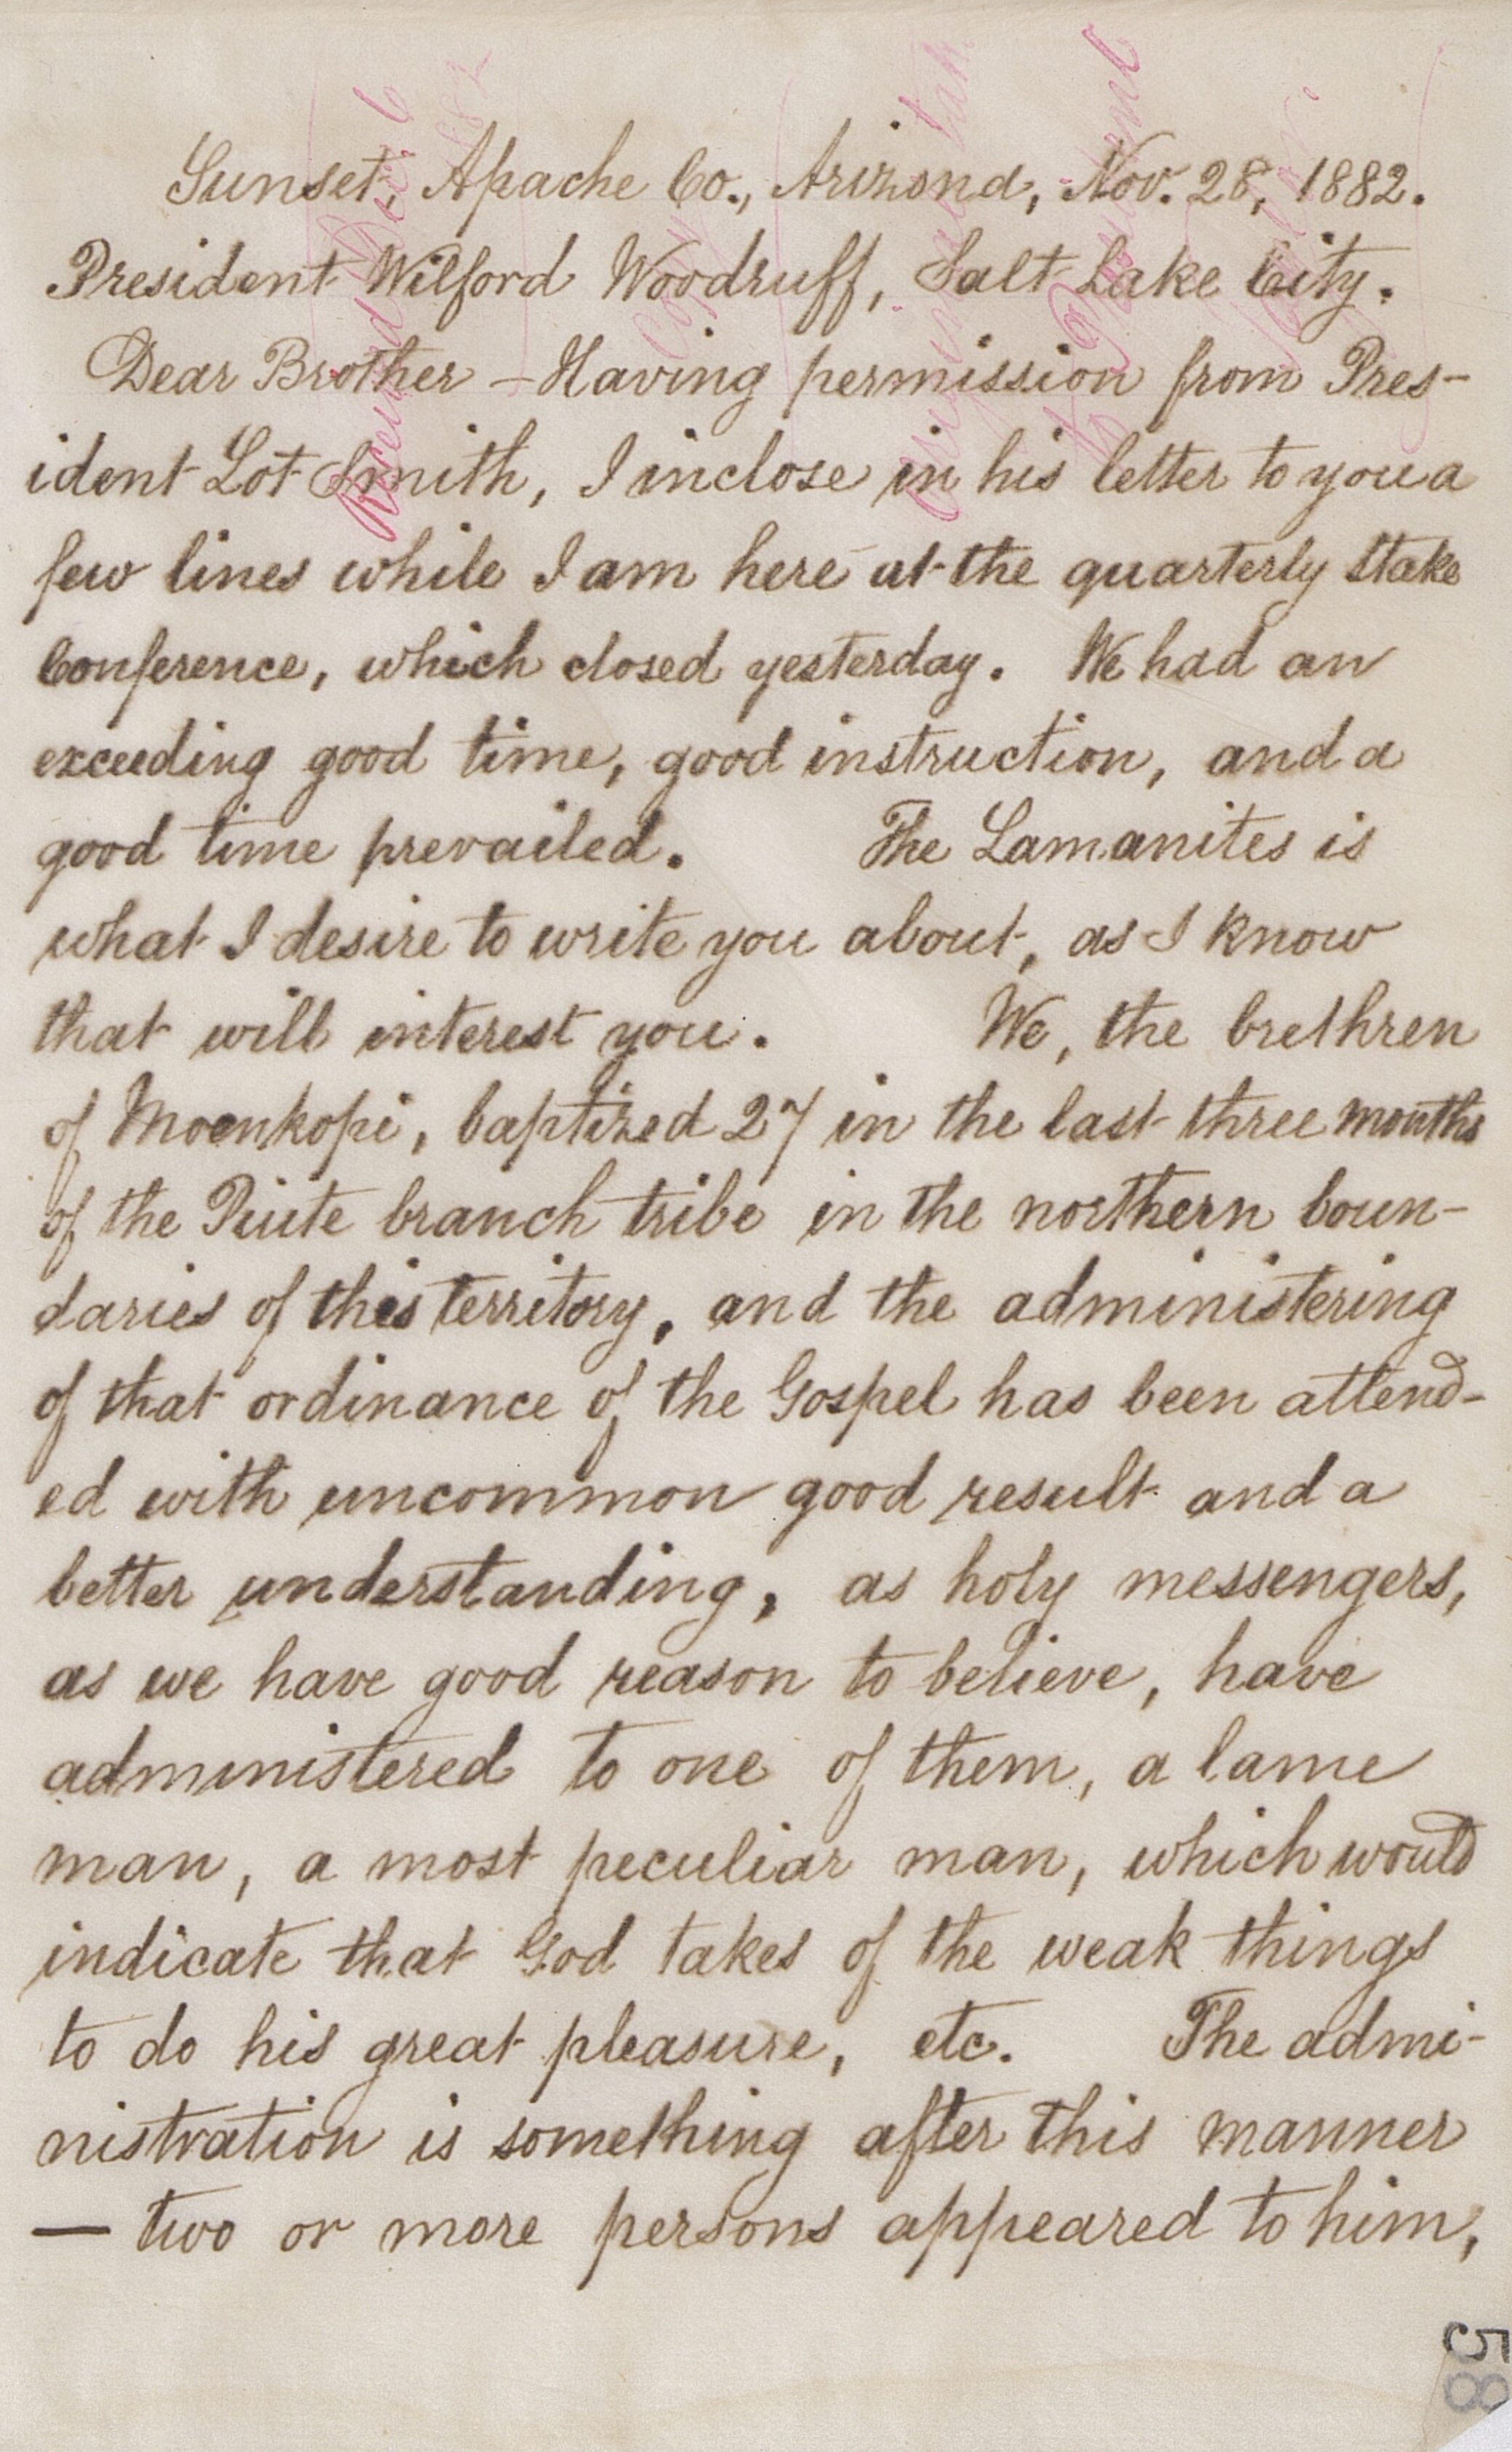 Sunset, Apache Co., Arizona, Nov. 28, 1882.
President Wilford Woodruff, Salt Lake City.
Dear Brother — Having permission from Pres-
ident Lot Smith, I inclose in his letter to you a
few lines while I am here at the quarterly Stake
Conference, which closed yesterday. We had an
exceeding good time, good instruction, and a
good time prevailed. The Lamanites is
what I desire to write you about, as I know
that will interest you. We, the brethren
of Moenkopi, baptized 27 in the last three months
of the Piute branch tribe in the northern boun-
daries of this territory, and the administering
of that ordinance of the Gospel has been attend-
ed with uncommon good result and a
better understanding, as holy messengers,
as we have good reason to believe, have
administered to one of them, a lame
man, a most peculiar man, which would
indicate that God takes of the weak things
to do his great pleasure, etc. The admi-
nistration is something after this manner
— two or more persons appeared to him,
58
Received Dec. 6
1882
Copy